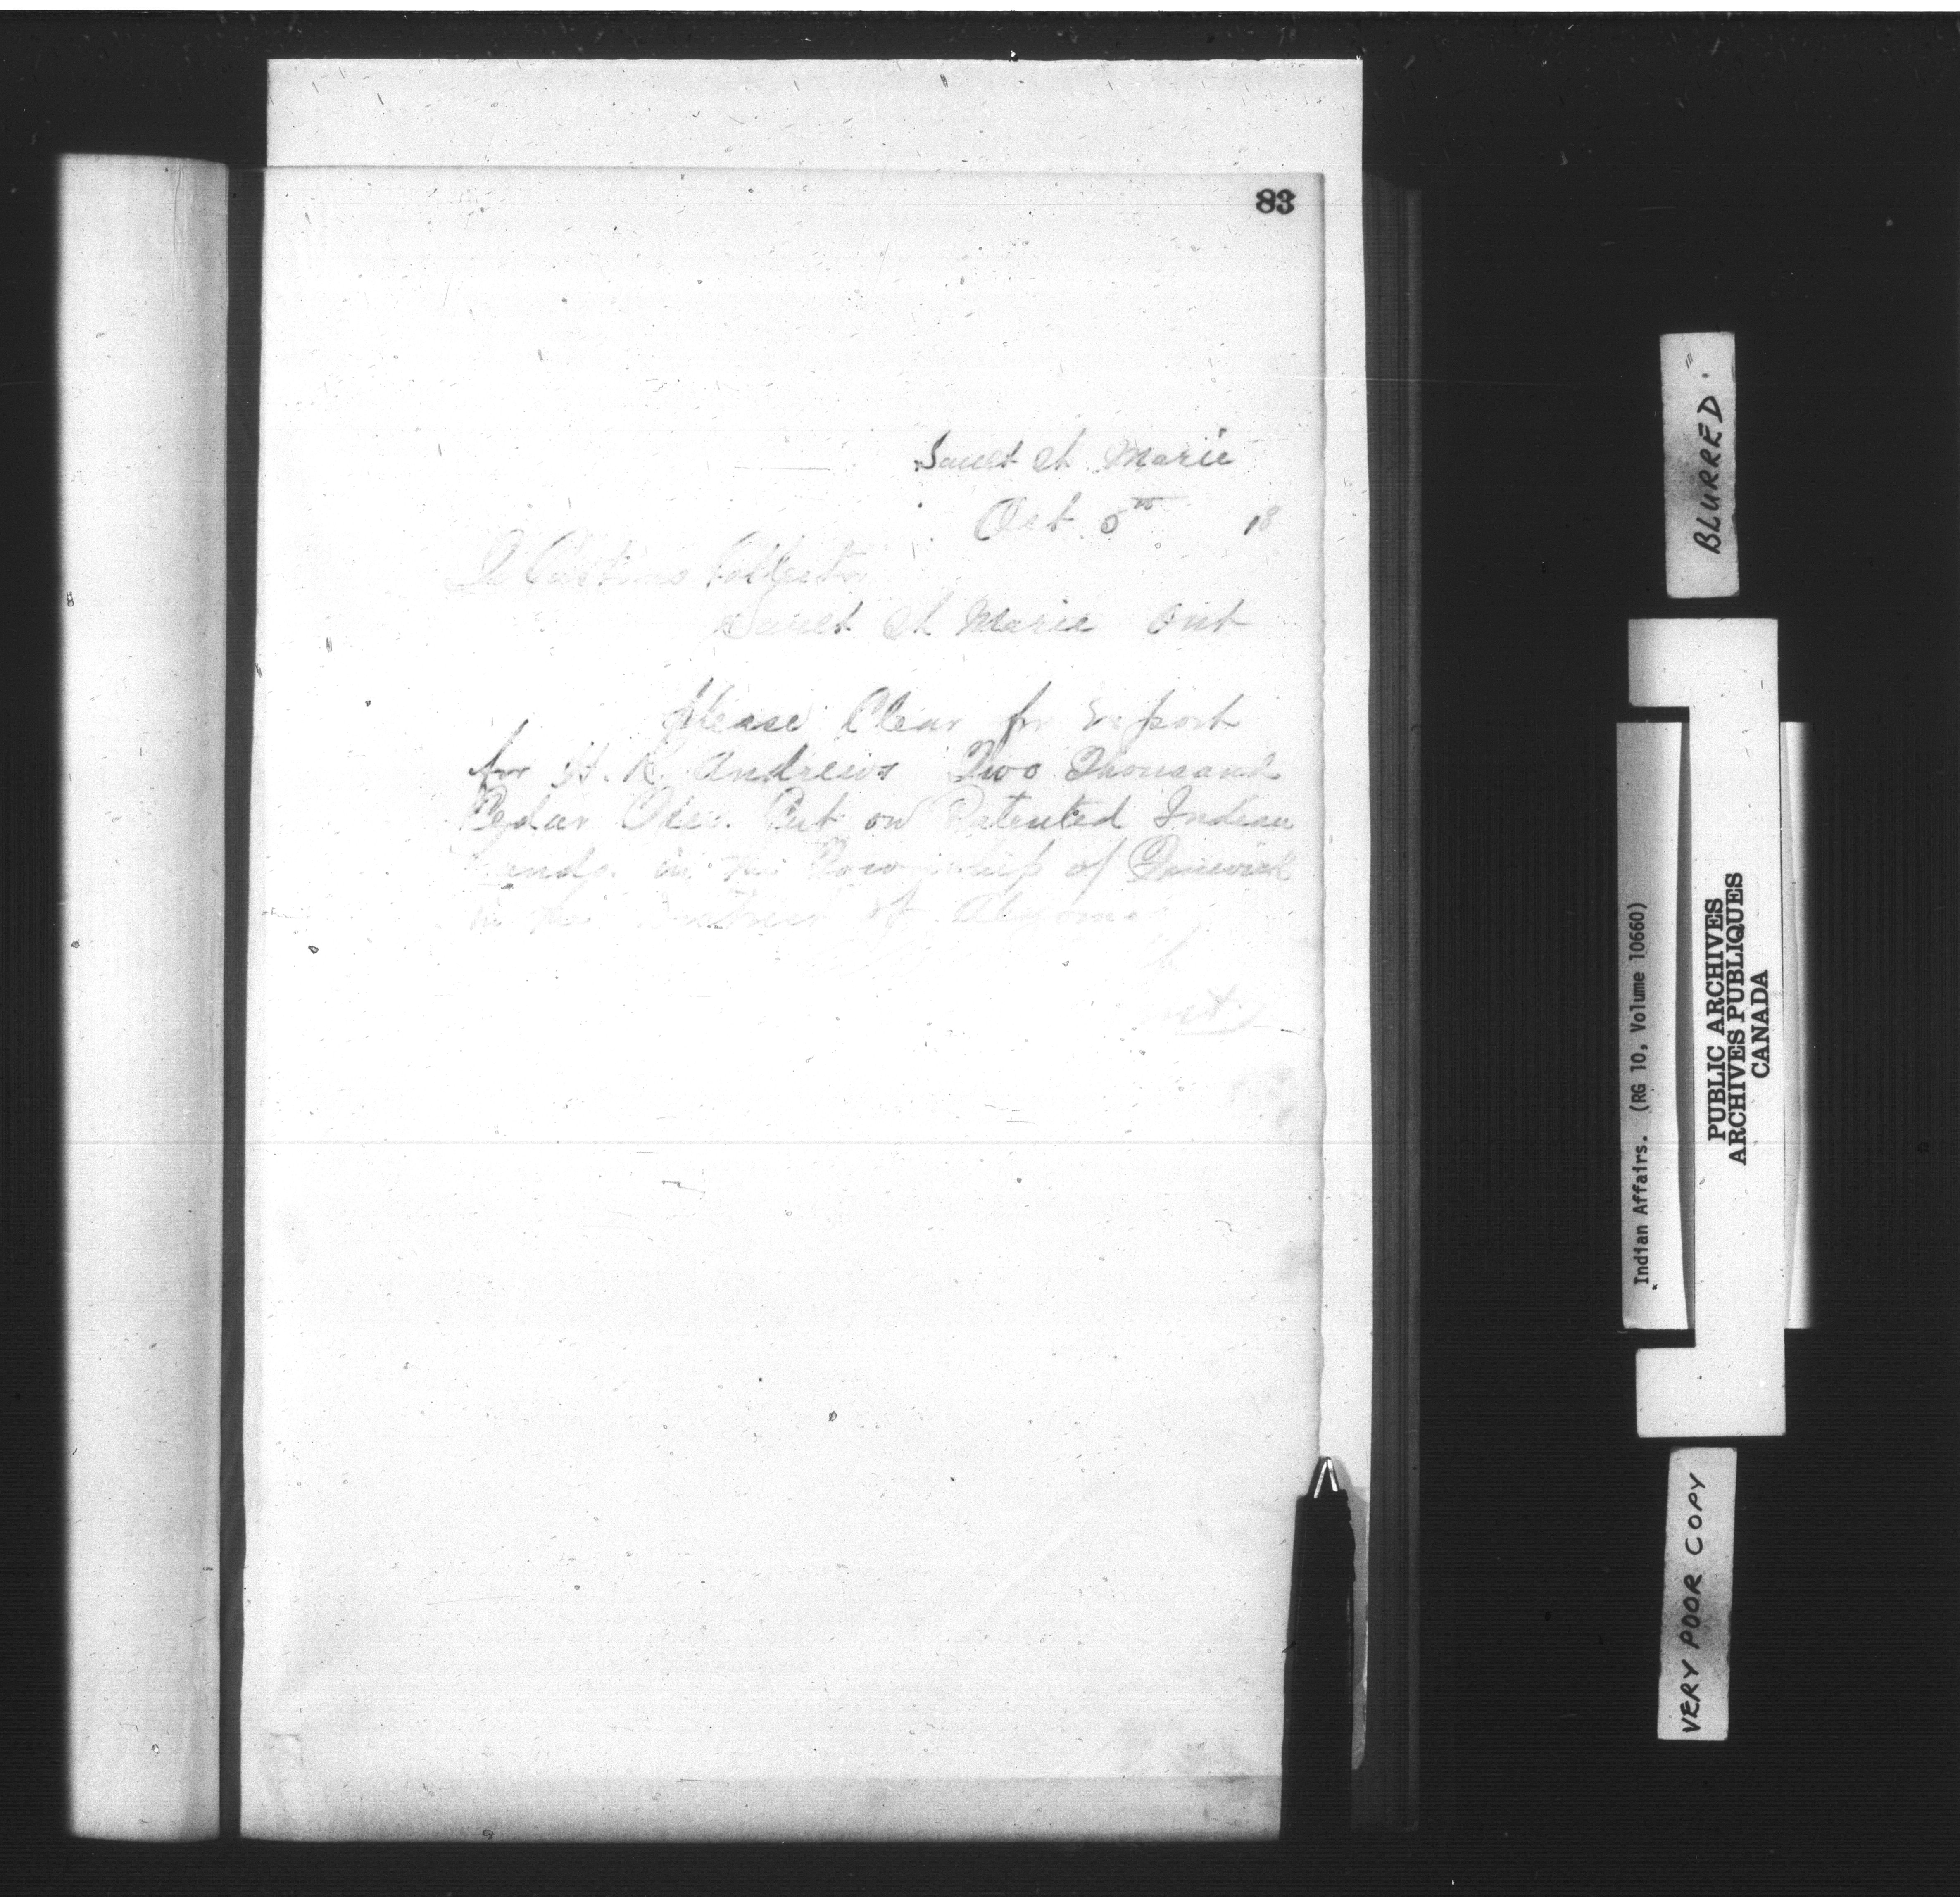 83
Sault St Marie
Oct 5th 18
Customs Collector
Sault St Marie Ont
Please Clear for Export
for H. R. Andrews Two Thousand
Cedar Cut on Patented Indian
Lands in the Township of
in the District of Algoma
BLURRED
Indian Affairs. (RG 10, Volume 10660)
PUBLIC ARCHIVES
ARCHIVES PUBLIQUES
CANADA
VERY POOR COPY